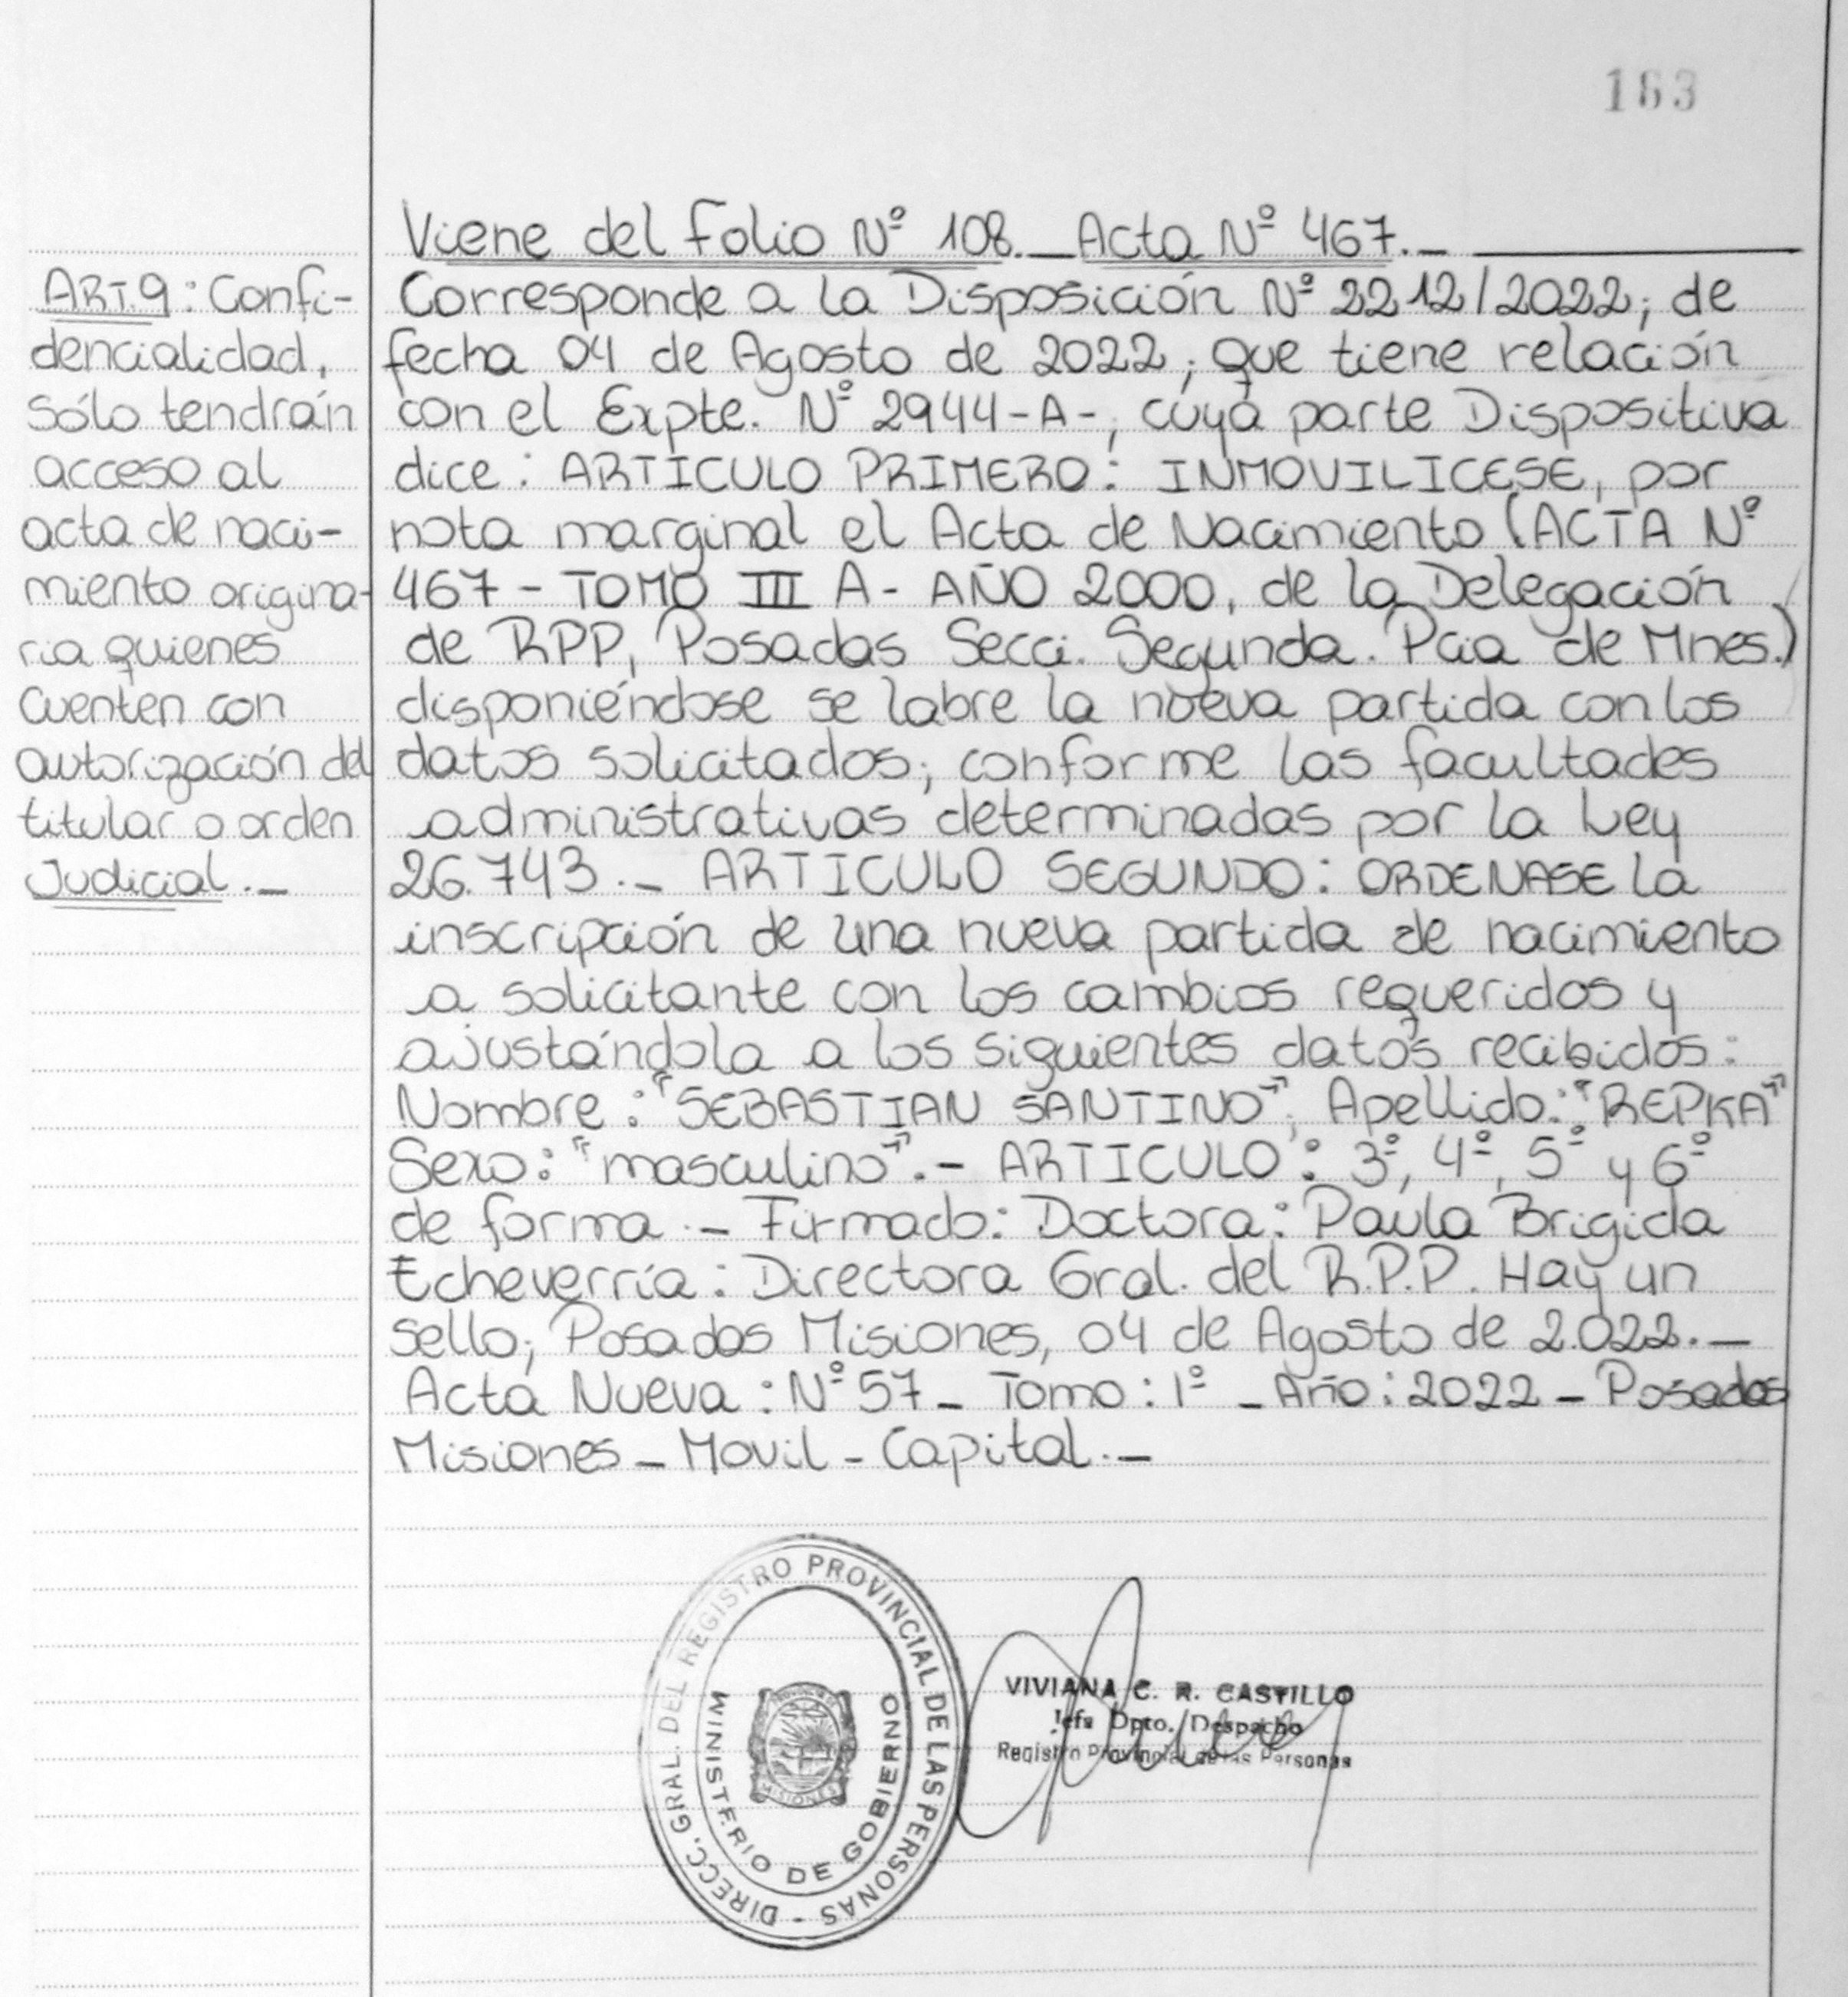 163
Viene del Folio Nº 108. _ Acta Nº 467. _
ART. 9: Confi-
dencialidad,
sólo tendrán
acceso al
acta de naci-
miento origina-
ria quienes
cuenten con
autorización del
titular o orden
Judicial. _
Corresponde a la Disposición Nº 2212/2022; de
fecha 04 de Agosto de 2022; que tiene relación
con el Expte. Nº 2944-A-; cuya parte Dispositiva
dice: ARTÍCULO PRIMERO: INMOVILICESE, por
nota marginal el Acta de Nacimiento (ACTA Nº
467 - TOMO III A - AÑO 2000, de la Delegación
de RPP, Posadas Secci. Segunda. Pcia de Mnes.)
disponiéndose se labre la nueva partida con los
datos solicitados; conforme las facultades
administrativas determinadas por la Ley
26.743. _ ARTICULO SEGUNDO: ORDENASE la
inscripción de una nueva partida de nacimiento
a solicitante con los cambios requeridos y
ajustándola a los siguientes datos recibidos:
Nombre: "SEBASTIAN SANTINO", Apellido: "REPKA"
Sexo: "masculino". - ARTICULO: 3º, 4º, 5º y 6º
de forma. - Firmado: Doctora: Paula Brigida
Echeverría: Directora Gral. del R.P.P. Hay un
sello; Posadas Misiones, 04 de Agosto de 2.022. _
Acta Nueva: Nº 57 _ Tomo: 1º _ Año: 2022 - Posadas
Misiones _ Movil - Capital. _
DIRECC. GRAL. DEL REGISTRO PROVINCIAL DE LAS PERSONAS -
MINISTERIO DE GOBIERNO
MISIONES
VIVIANA C. R. CASTILLO
Jefe Dpto. Despacho
Registro Provincial de las Personas